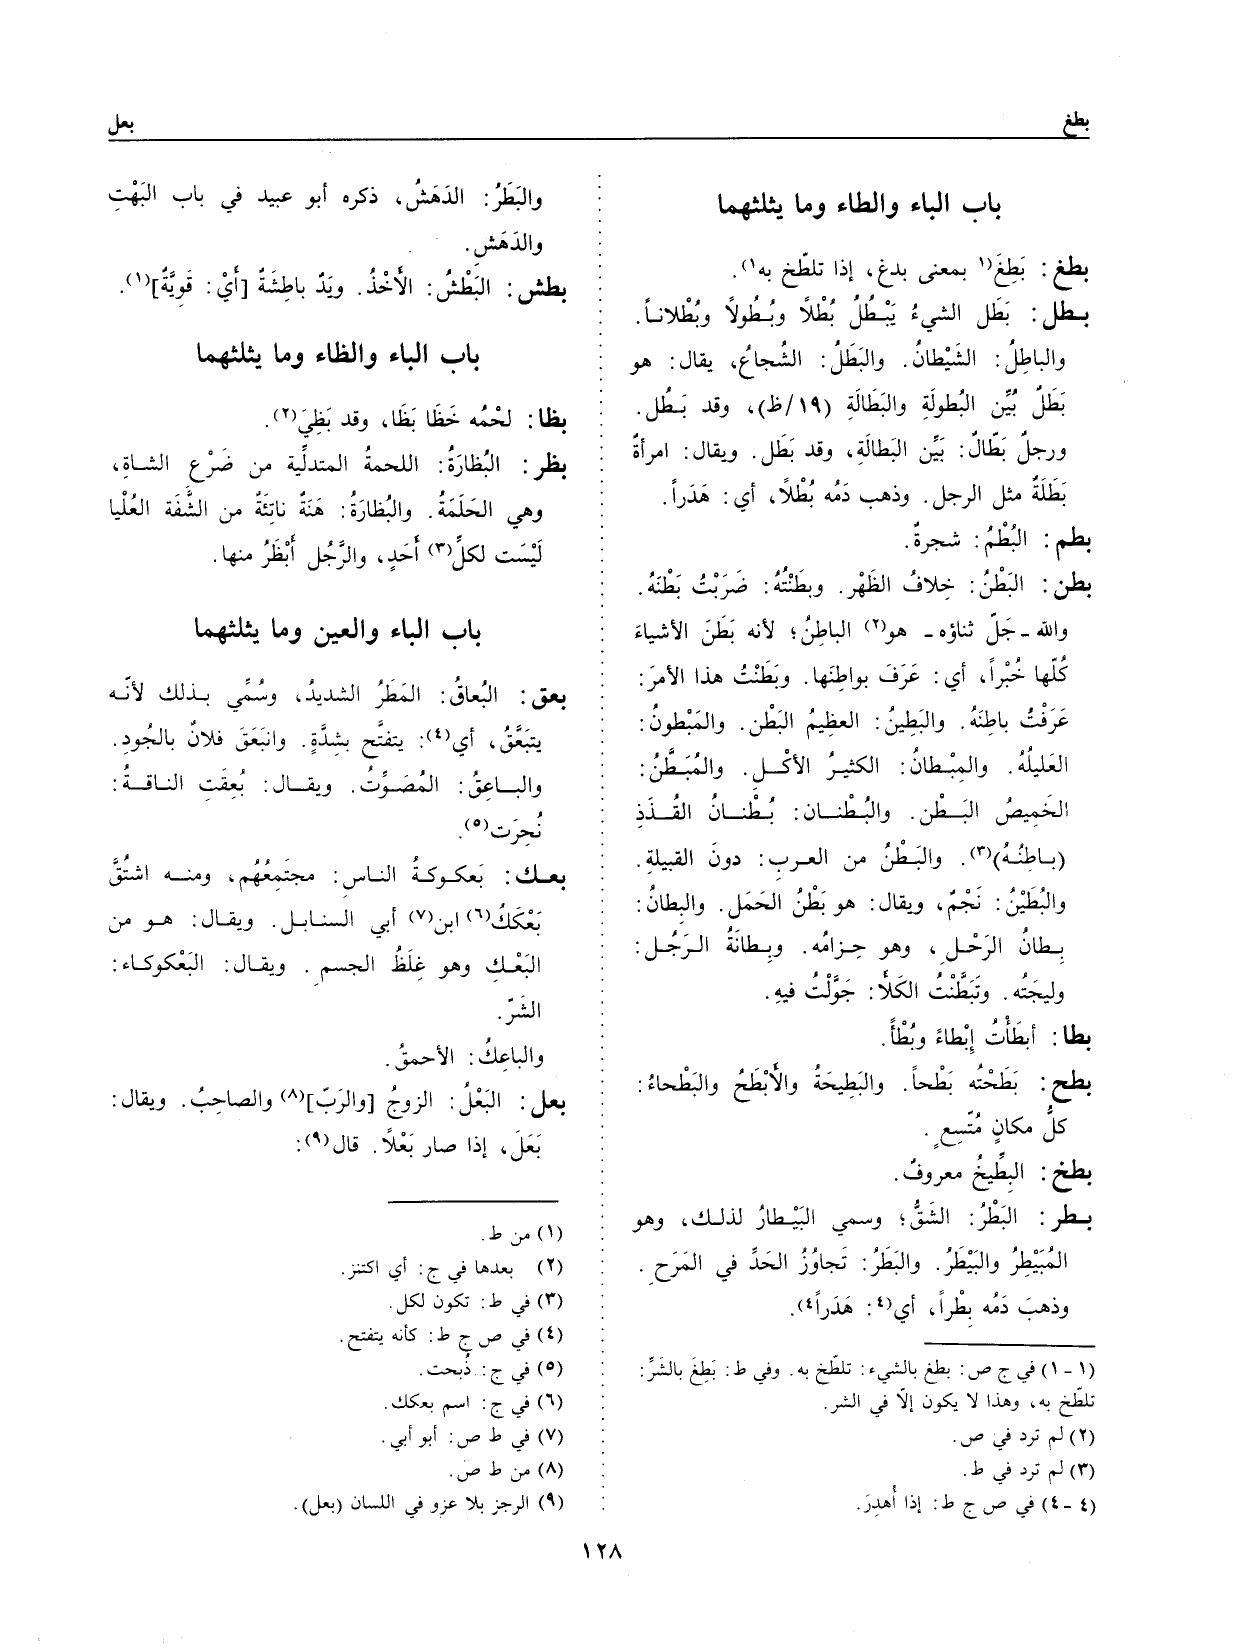 بطغ
بعل
باب الباء والطاء وما يثلثهما
بطغ: بَطِغَ(١ بمعنى بدغ، إذا تلطّخ به١).
بطل: بَطَل الشيءُ يَبْطُلُ بُطْلاً وبُطُولاً وبُطْلاناً.
والباطِلُ: الشَيْطانُ. والبَطَلُ: الشُجاعُ، يقال: هو
بَطَلٌ بُيِّن البُطولَةِ والبَطَالَةِ (١٩/ظ)، وقد بَطُل.
ورجلٌ بَطّالٌ: بَيِّن البَطالَةِ، وقد بَطَل. ويقال: امرأةٌ
بَطَلَةٌ مثل الرجل. وذهب دَمُه بُطْلاً، أي: هَدَراً.
بطم: البُطْمُ: شجرةٌ.
بطن: البَطْنُ: خِلافُ الظَهْر. وبطَنْتُهُ: ضَرَبْتُ بَطْنَهُ.
والله -جَلّ ثناؤه- هو(٢) الباطِنُ؛ لأنه بَطَنَ الأشياءَ
كُلّها خُبْراً، أي: عَرَفَ بواطِنَها. وبَطَنْتُ هذا الأمرَ:
عَرَفْتُ باطِنَهُ. والبَطِينُ: العظيمُ البَطْن. والمَبْطونُ:
العَليلُهُ. والمِبْطانُ: الكثيرُ الأكْل. والمُبَطَّنُ:
الخَمِيصُ البَطْن. والبُطْنان: بُطْنانُ القُذَذِ
(باطِنُهُ)(٣). والبَطْنُ من العرب: دونَ القبيلةِ.
والبُطَيْنُ: نَجْمٌ، ويقال: هو بَطْنُ الحَمَل. والبِطانُ:
بِطانُ الرَحْلِ، وهو حِزامُه. وبِطانَةُ الرَجُل:
وليجَته. وتَبَطَّنْتُ الكَلأَ: جَوَّلْتُ فيهِ.
بطا: أبطَأتُ إبْطاءً وبُطْأً.
بطح: بَطَحْتُه بَطْحاً. والبَطِيحَةُ والأبْطَحُ والبَطْحاءُ:
كلُّ مكانٍ مُتّسِعٍ.
بطخ: البِطِّيخُ معروفٌ.
بطر: البَطْرُ: الشَقُّ؛ وسمي البَيْطارُ لذلك، وهو
المُبَيْطِرُ والبَيْطَرُ. والبَطَرُ: تَجاوُزُ الحَدِّ في المَرَحِ.
وذهبَ دَمُه بِطْراً، أي(٤: هَدَراً٤).
(١-١) في ج ص: بطغ بالشيء: تلطّخ به. وفي ط: بَطِغَ بالشَرِّ:
تلطّخ به، وهذا لا يكون إلّا في الشر.
(٢) لم ترد في ص.
(٣) لم ترد في ط.
(٤-٤) في ص ج ط: إذا أُهدِرَ.
والبَطَرُ: الدَهَشُ، ذكره أبو عبيد في باب البَهْتِ
والدَهَشِ.
بطش: البَطْشُ: الأَخْذُ. ويَدٌ باطِشَةٌ [أيْ: قَوِيَّةٌ](١).
باب الباء والظاء وما يثلثهما
بظا: لحْمُه خَظَا بَظَا، وقد بَظِيَ(٢).
بظر: البُظارَةُ: اللحمةُ المتدلِّية من ضَرْع الشاةِ،
وهي الحَلَمَةُ. والبُظارَةُ: هَنَةٌ ناتِئَةٌ من الشَّفَة العُلْيا
لَيْسَت لكلِّ(٣) أَحَدٍ، والرَّجُل أَبْظَرُ منها.
باب الباء والعين وما يثلثهما
بعق: البُعاقُ: المَطَرُ الشديدُ، وسُمِّي بذلك لأنّه
يتبَعَّقُ، أي(٤): يتفتَّح بشدَّةٍ. وانبَعَقَ فلانٌ بالجُودِ.
والباعِقُ: المُصَوِّتُ. ويقال: بُعِقَتِ الناقةُ:
نُحِرَت(٥).
بعك: بَعكوكةُ الناس: مجتَمِعُهُم، ومنه اشتُقَّ
بَعْكَكُ(٦) ابن(٧) أبي السنابل. ويقال: هو من
البَعْكِ وهو غِلَظُ الجسمِ. ويقال: البَعْكوكاء:
الشَرّ.
والباعِكُ: الأحمقُ.
بعل: البَعْلُ: الزوجُ [والرَبّ](٨) والصاحِبُ. ويقال:
بَعَلَ، إذا صار بَعْلاً. قال(٩):
(١) من ط.
(٢) بعدها في ج: أي اكتنز.
(٣) في ط: تكون لكل.
(٤) في ص ج ط: كأنه يتفتح.
(٥) في ج: ذُبحت.
(٦) في ج: اسم بعكك.
(٧) في ط ص: أبو أبي.
(٨) من ط ص.
(٩) الرجز بلا عزو في اللسان (بعل).
١٢٨